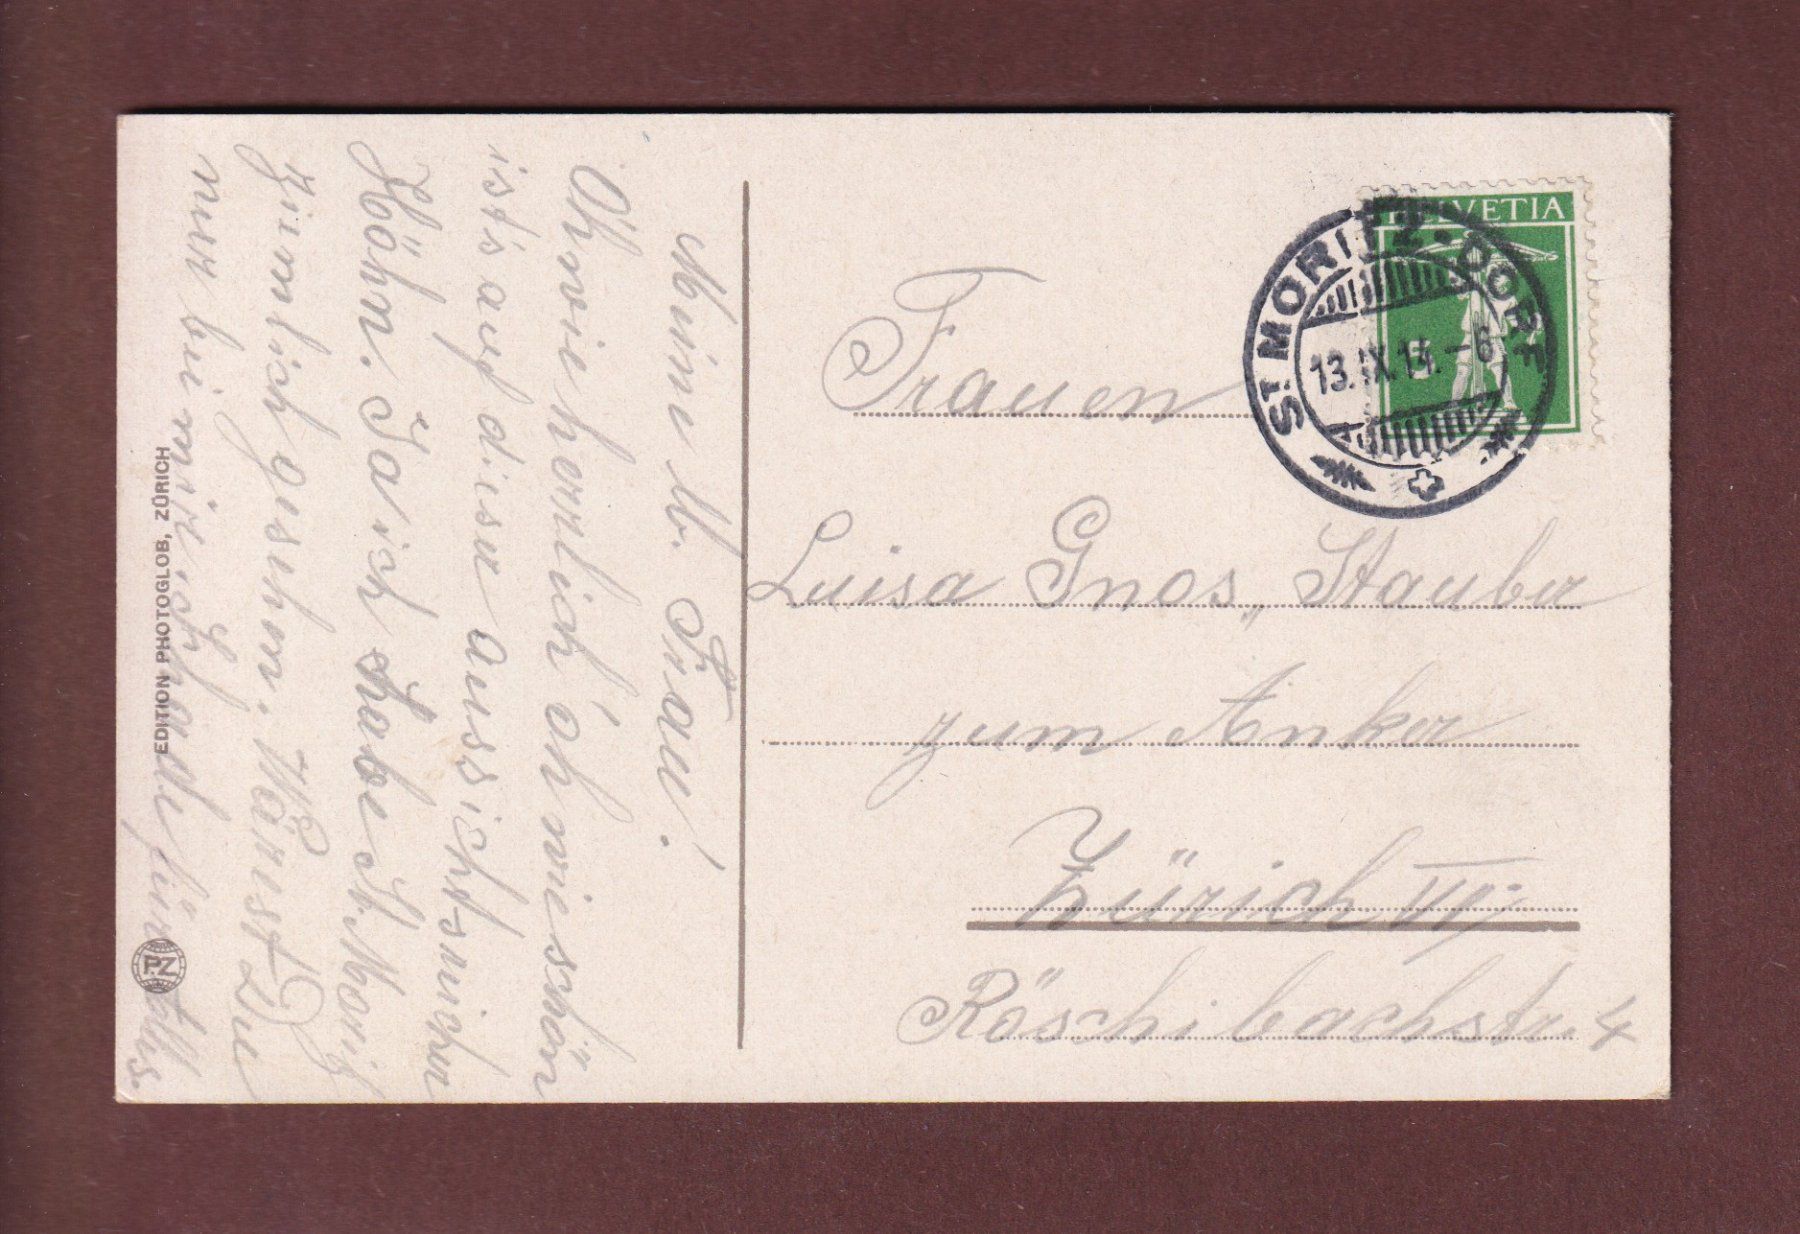 Meine lb. Frau!
Oh wie herrlich oh wie schön
ist's auf diesen aussichtsreichen
Höhn. Ja ich habe St. Moritz
ziemlich gesehen. Wärest Du
nur bei mir. Ich
EDITION PHOTOGLOB, ZÜRICH
PZ
HELVETIA
5
ST. MORITZ-DORF
13.IX.14.-6
Frauen
Luisa Gnos-Stauber
zum Anker
Zürich VI
Röschibachstr. 4